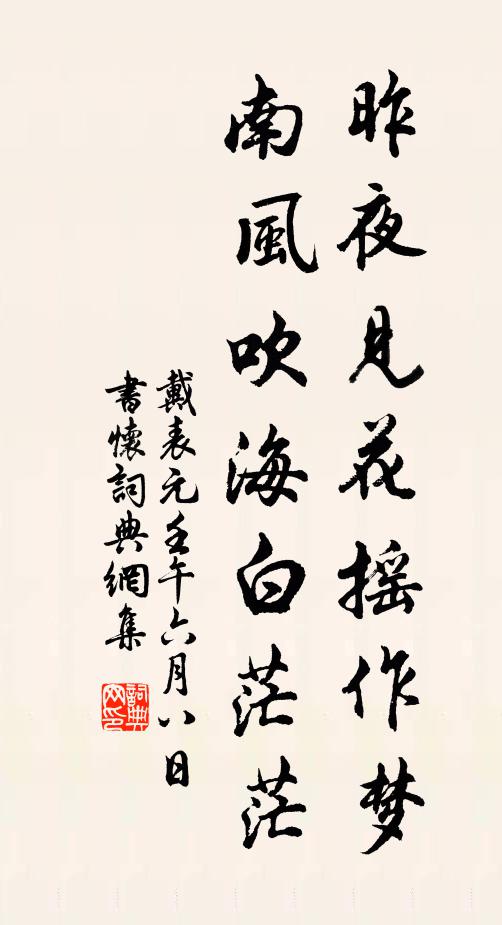 昨夜見花摇作梦
南風吹海白茫茫
戴表元壬午六月八日
書懷詞典網集
詞典
网印